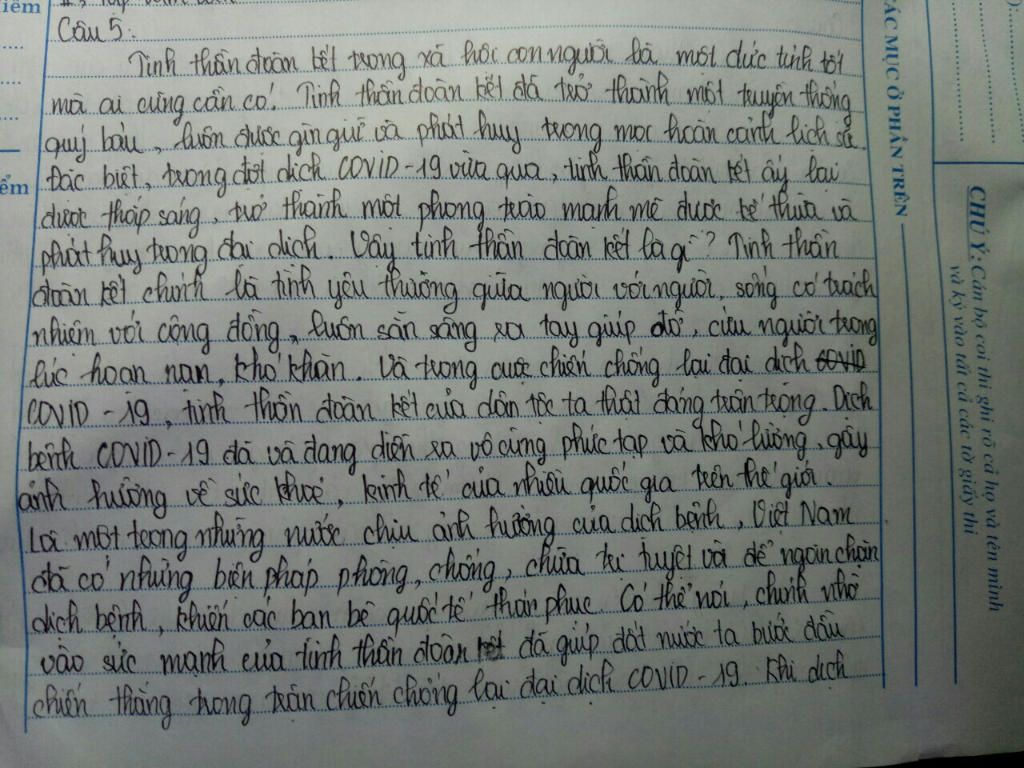 iểm
Câu 5:
Tinh thần đoàn kết trong xã hội con người là một đức tính tốt
mà ai cũng cần có. Tinh thần đoàn kết đã trở thành một truyền thống
quý báu, luôn được gìn giữ và phát huy trong mọi hoàn cảnh lịch sử.
Đặc biệt, trong đợt dịch COVID-19 vừa qua, tinh thần đoàn kết ấy lại
được thắp sáng, trở thành một phong trào mạnh mẽ được kế thừa và
phát huy trong đại dịch. Vậy tinh thần đoàn kết là gì? Tinh thần
đoàn kết chính là tình yêu thương giữa người với người, sống có trách
nhiệm với cộng đồng, luôn sẵn sàng ra tay giúp đỡ, cứu người trong
lúc hoạn nạn, khó khăn. Và trong cuộc chiến chống lại đại dịch COVID
COVID-19, tinh thần đoàn kết của dân tộc ta thật đáng trân trọng. Dịch
bệnh COVID-19 đã và đang diễn ra vô cùng phức tạp và khó lường, gây
ảnh hưởng về sức khoẻ, kinh tế của nhiều quốc gia trên thế giới.
Là một trong những nước chịu ảnh hưởng của dịch bệnh, Việt Nam
đã có những biện pháp phòng, chống, chữa trị tuyệt vời để ngăn chặn
dịch bệnh, khiến các bạn bè quốc tế thán phục. Có thể nói, chính nhờ
vào sức mạnh của tinh thần đoàn kết đã giúp đất nước ta bước đầu
chiến thắng trong trận chiến chống lại đại dịch COVID-19. Khi dịch
ểm
ÁC MỤC Ở PHẦN TRÊN
CHÚ Ý: Cán bộ coi thi ghi rõ cả họ và tên mình
và ký vào tất cả các tờ giấy thi